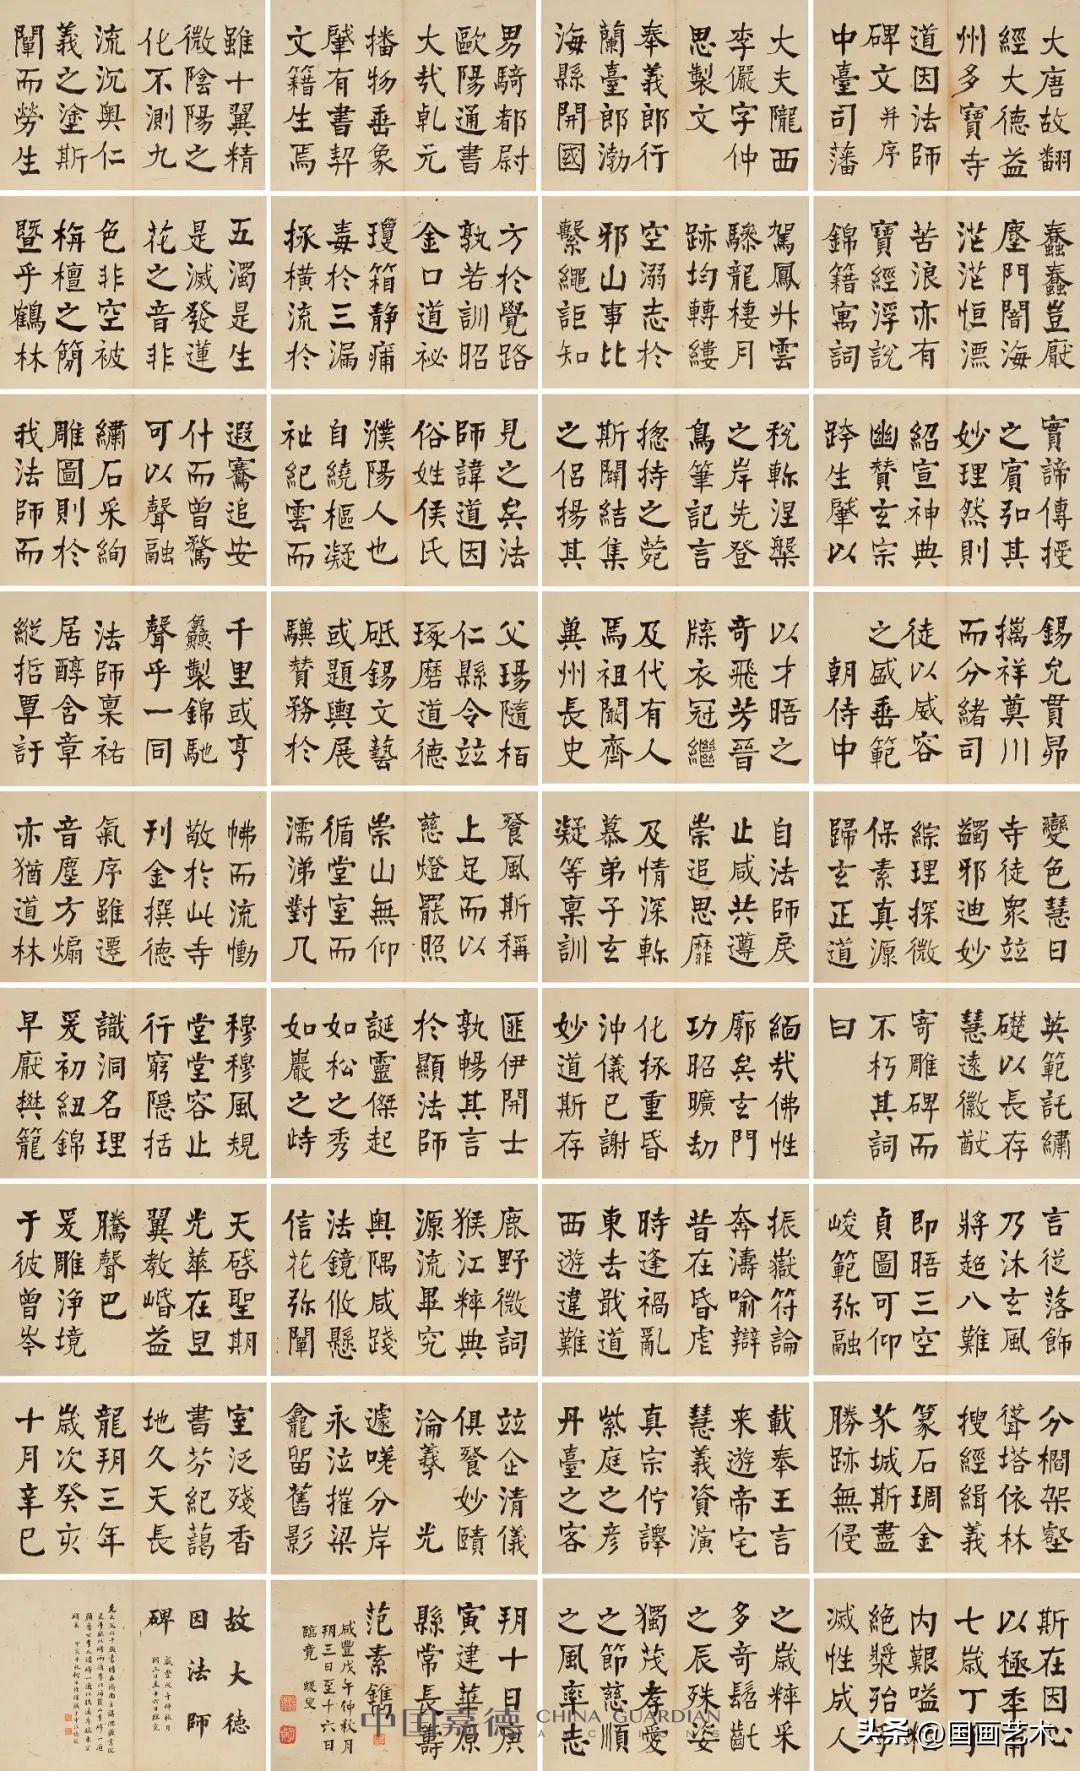 大唐故翻
經大德益
州多寶寺
道因法師
碑文并序
中臺司藩
大夫隴西
李儼字仲
思製文
奉義郎行
蘭臺郎渤
海縣開國
男騎都尉
歐陽通書
大哉乹元
播物垂象
肇有書契
文籍生焉
雖十翼精
微陰陽之
化不測九
流沉奧仁
義之塗斯
闡而勞生
蠢蠢豈厭
塵門闇海
茫茫恒漂
苦浪亦有
寶經浮說
錦籍寓詞
駕鳳升雲
驂龍棲月
跡均轉縷
空溺志於
邪山事比
繫繩詎知
方於覺路
孰若訓昭
金口道祕
瓊箱靜痛
毒於三漏
拯橫流於
五濁是生
是滅發蓮
花之音非
色非空被
栴檀之簡
暨乎鶴林
實諦傳授
之賓弘其
妙理然則
紹宣神典
幽贊玄宗
跨生肇以
稅軫涅槃
之岸先登
鳥筆記言
揔持之菀
斯闢結集
之侣揚其
見之矣法
師諱道因
俗姓侯氏
濮陽人也
自繞樞凝
祉紀雲而
遐騫追安
什而曾騖
可以聲融
繡石采絢
雕圖則於
我法師而
錫允貫昴
摛祥奠川
而分緒司
徒以威容
之盛垂範
朝侍中
以才晤之
奇飛芳晉
牒衣冠繼
及代有人
焉祖闞齊
冀州長史
父瑒隨栢
仁縣令竝
琢磨道德
砥錫文藝
或題輿展
驥贊務於
千里或亨
鱻製錦馳
聲乎一同
法師稟祐
居醇含章
縱哲覃訏
變色慧日
寺徒眾竝
蠲邪迪妙
綜理探微
保素真源
歸玄正道
自法師戾
止咸共遵
崇追思靡
及情深軫
慕弟子玄
凝等稟訓
餐風斯稱
上足而以
慈燈罷照
崇山無仰
循堂室而
濡涕對几
怫而流慟
敬於此寺
刊金撰德
氣序雖遷
音塵方煽
亦猶道林
英範託繡
礎以長存
慧遠徽猷
寄雕碑而
不朽其詞
曰
緬哉佛性
廓矣玄門
功昭曠劫
化拯重昏
沖儀已謝
妙道斯存
匪伊開士
孰暢其言
於顯法師
誕靈傑起
如松之秀
如巖之峙
穆穆風規
堂堂容止
行窮隱括
識洞名理
爰初紐錦
早厭樊籠
言從落飾
乃沐玄風
將超八難
即晤三空
貞圖可仰
峻範弥融
振嶽符論
奔濤喻辯
昔在昏虐
時逢禍亂
東去戢道
西遊違難
鹿野微詞
猴江粹典
源流畢究
奧隅咸踐
法鏡攸懸
信花弥闡
天啓聖期
光華在旦
翼教嶓益
騰聲巴
爰雕淨境
于彼曾岑
分櫩架壑
聳塔依林
搜經緝義
篆石琱金
芥城斯盡
勝跡無侵
載奉王言
来遊帝宅
慧義資演
真宗佇譯
紫庭之彥
丹臺之客
竝企清儀
俱餐妙賾
淪羲 光
遽嗟分岸
永泣摧梁
龕留舊影
室泛殘香
書芬紀藹
地久天長
龍朔三年
歲次癸亥
十月辛巳
斯在因心
以極
七歲丁
內艱嗌粒
絕漿殆乎
滅性成人
之歲粹采
多奇髫齔
之辰殊姿
獨茂孝愛
之節慈順
之風率志
朔十日庚
寅建華原
縣常長壽
范素鐫
咸豐戊午仲秋月
朔三日至十六日
臨竟 蝯叟
故大德
因法師
碑
咸豐戊午仲秋月
朔三日至十六日臨竟
中国嘉德 CHINA GUARDIAN
头条@国画艺术